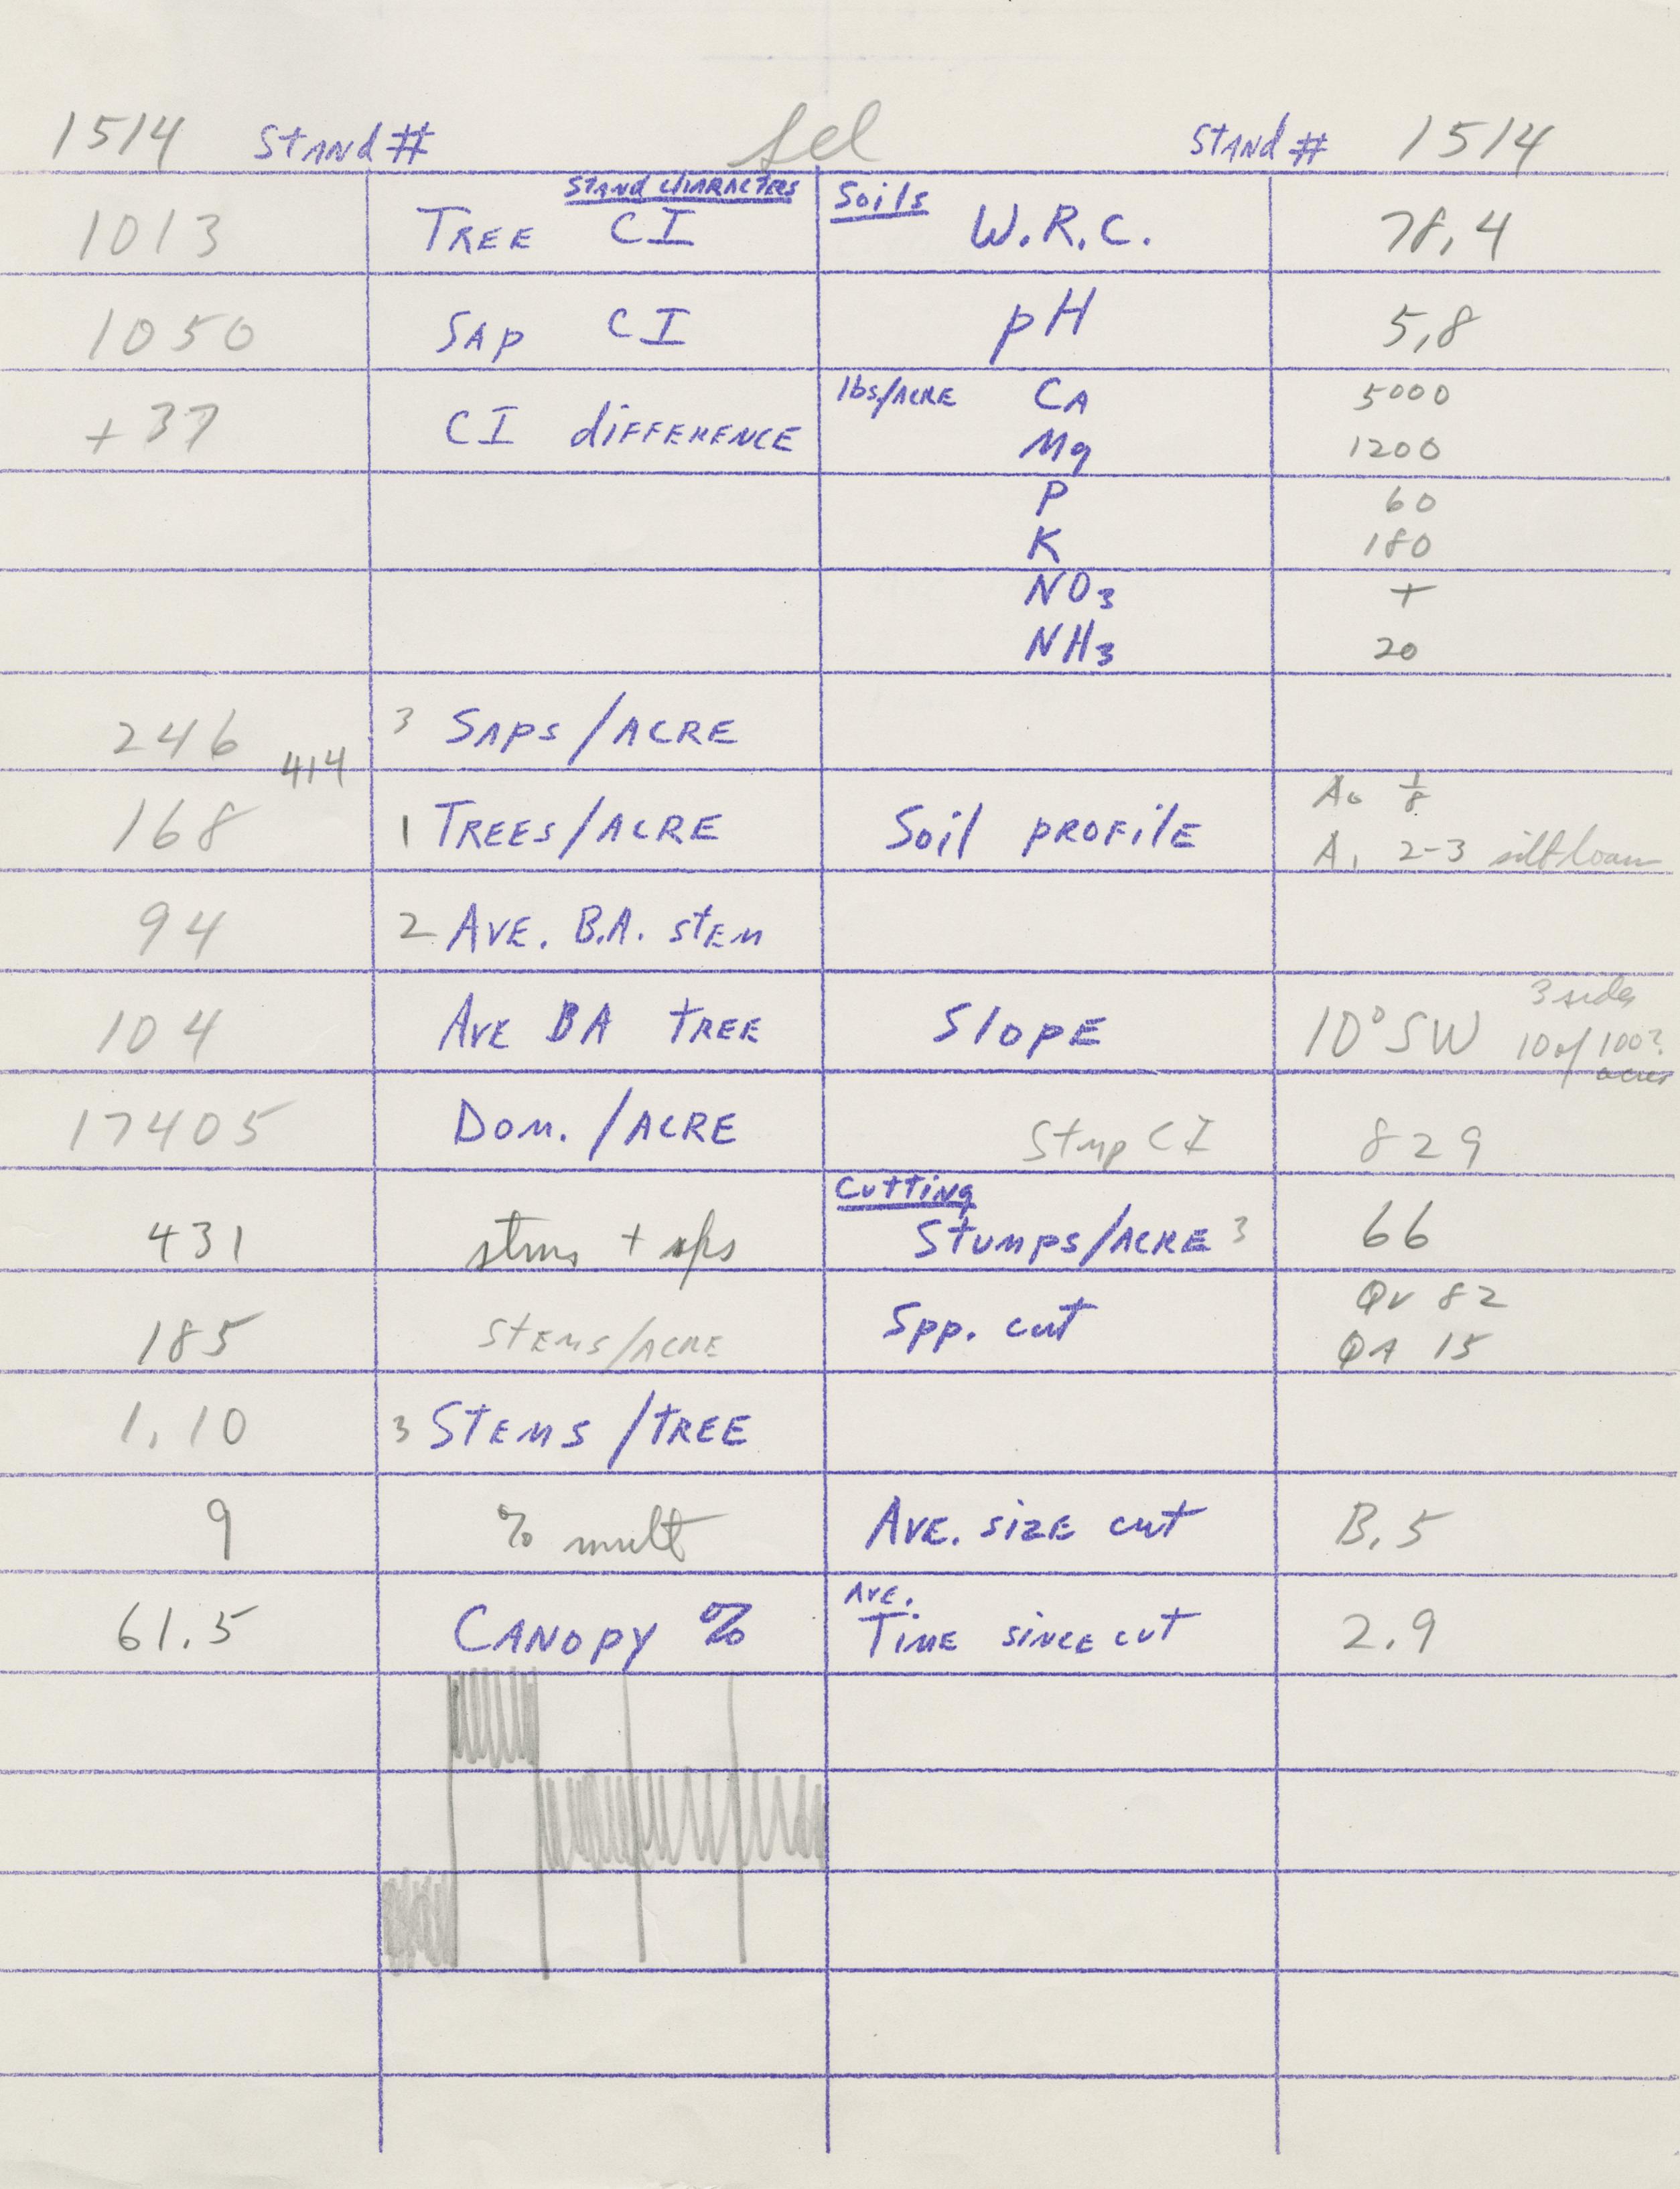 1514 Stand # Sel Stand # 1514
Stand Characters Soils
1013 Tree CI W.R.C. 78.4
1050 Sap CI pH 5.8
+37 CI difference lbs/Acre Ca 5000
Mg 1200
P 60
K 180
NO3 +
NH3 20
246 3 Saps/Acre
414
168 1 Trees/Acre Soil profile A0 1/8
A1 2-3 silt loam
94 2 Ave. B.A. stem
104 Ave BA tree Slope 10° SW 3 sides
10 of 100?
acres
17405 Dom./Acre Stmp CI 829
Cutting
431 stms + sps Stumps/Acre 3 66
185 Stems/Acre Spp. cut QV 82
QA 15
1.10 3 Stems/tree
9 % mult Ave. size cut B.5
61.5 Canopy % Ave. Time since cut 2.9